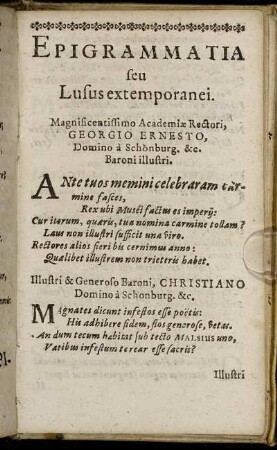 EPIGRAMMATIA
seu
Lusus extemporanei.
Magnificentissimo Academiæ Rectori,
GEORGIO ERNESTO,
Domino à Schönburg. &c.
Baroni illustri.
ANte tuos memini celebraram car-
mine fasces,
Rex ubi Musei factus es imperij:
Cur iterum, quæris, tua nomina carmine tollam?
Laus non illustri sufficit una viro.
Rectores alios fieri bis cernimus anno:
Qualibet illustrem non trieteris habet.
Illustri & Generoso Baroni, CHRISTIANO
Domino à Schonburg. &c.
MAgnates dicunt infestos esse poëtis:
His adhibere fidem, flos generose, vetas.
An dum tecum habitat sub tecto MALSIUS uno,
Vatibus infestum te rear esse sacris?
Illustri